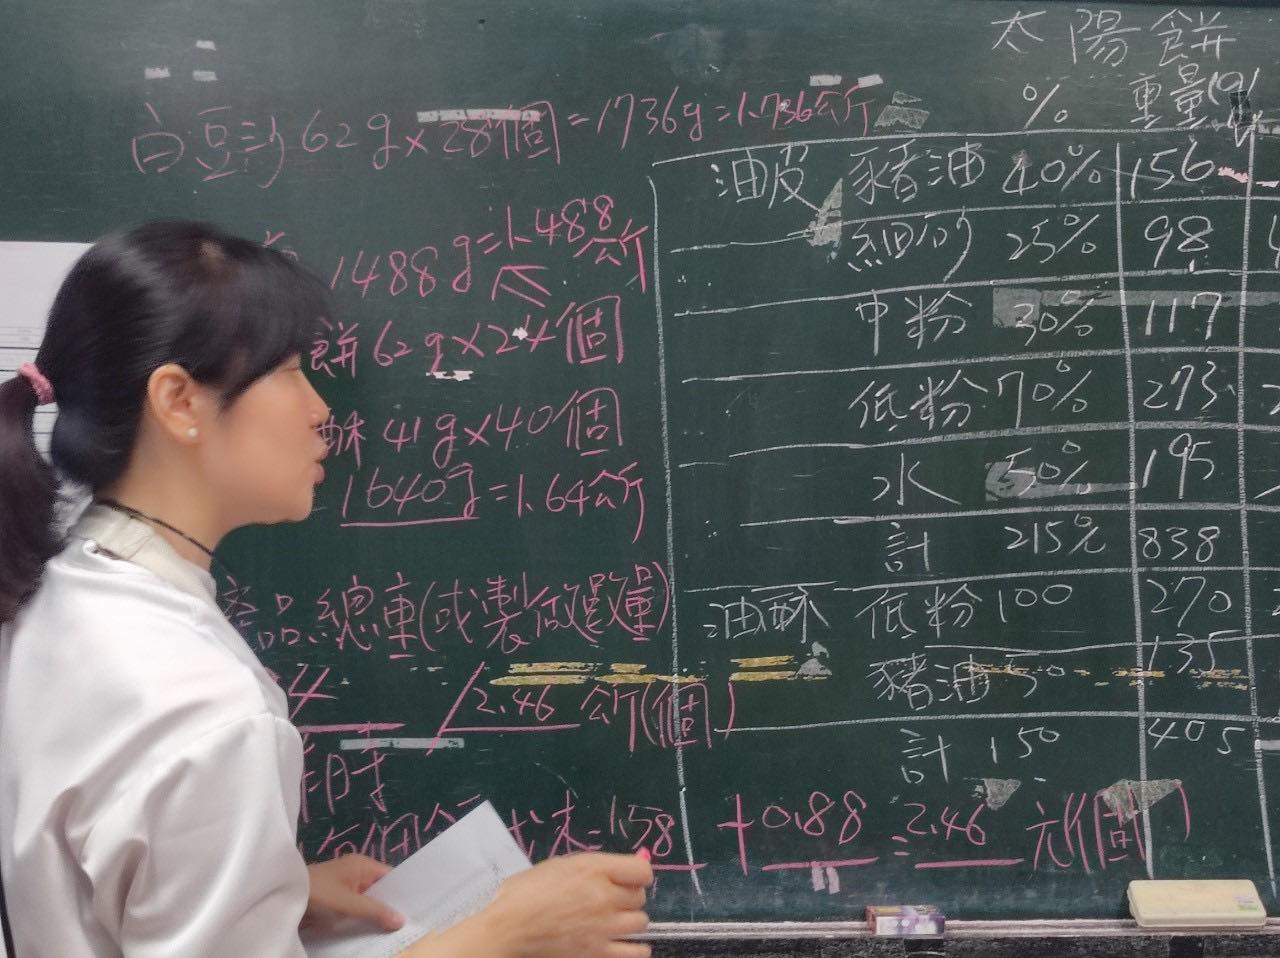 太陽餅
% 重量(g)
白豆沙62g×28個=1736g=1.736公斤
油皮 豬油 40% 156
細砂 25% 98
中粉 30% 117
低粉 70% 273
水 50% 195
計 215% 838
油酥 低粉 100 270
豬油 50 135
計 150 405
1488g=1.488公斤
餅62g×24個
酥41g×40個
1640g=1.64公斤
產品總重(或製做數量)
2.46 公斤(個)
時
成本=1.58+0.88=2.46元(個)